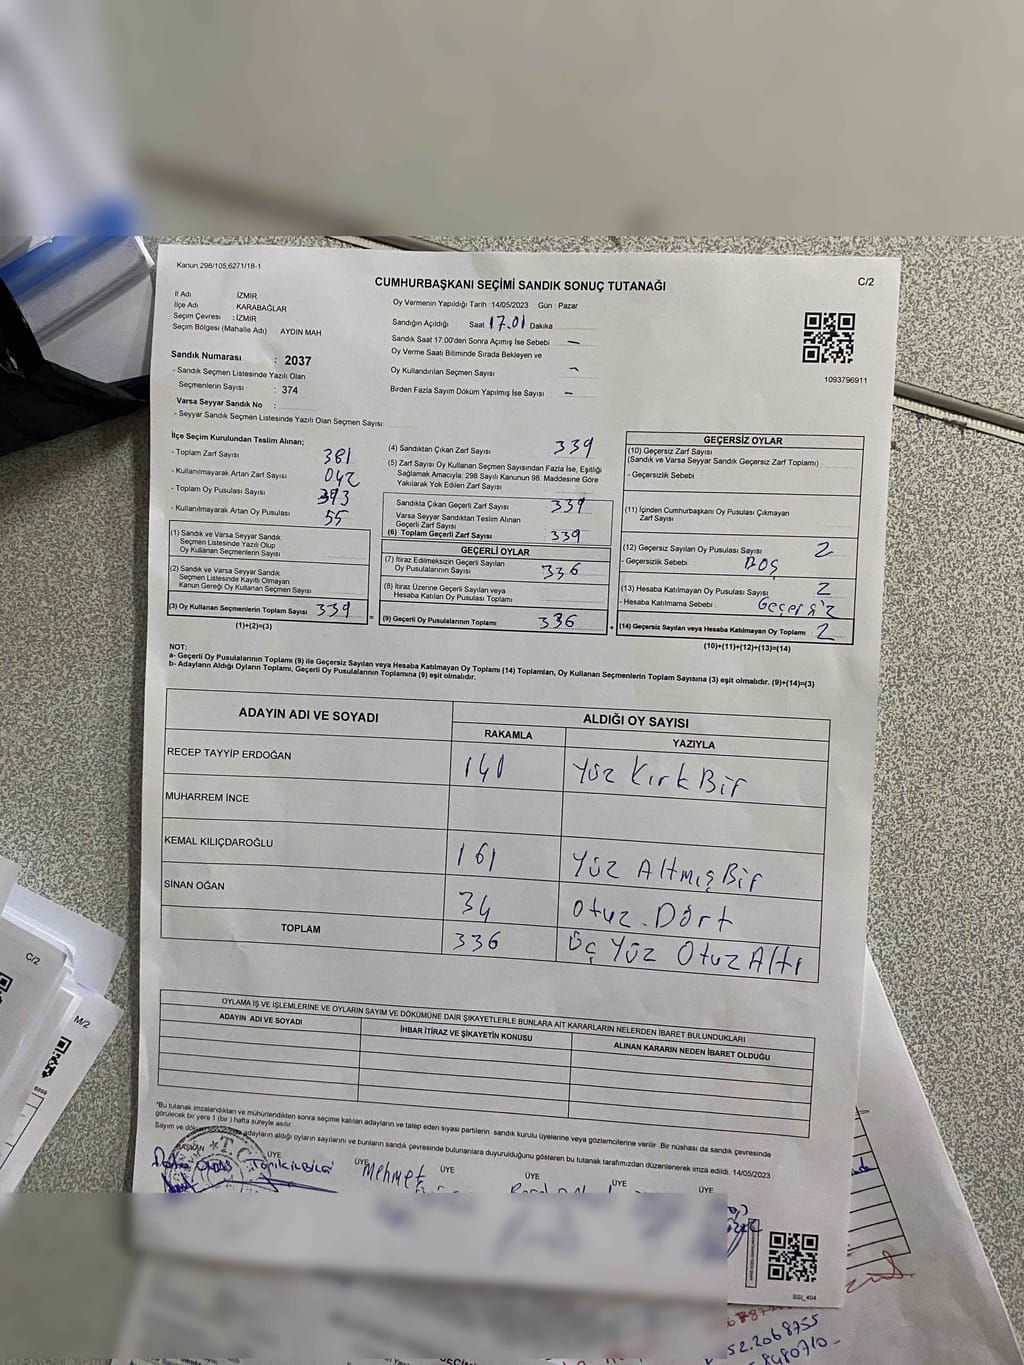 Kanun;298/105,6271/18-1
C/2
CUMHURBAŞKANI SEÇİMİ SANDIK SONUÇ TUTANAĞI
İl Adı : İZMİR
İlçe Adı : KARABAĞLAR
Seçim Çevresi : İZMİR
Seçim Bölgesi (Mahalle Adı) : AYDIN MAH.
Oy Vermenin Yapıldığı Tarih : 14/05/2023 Gün : Pazar
Sandığın Açıldığı Saat 17.01 Dakika
Sandık Saat 17.00'den Sonra Açımış İse Sebebi –
Oy Verme Saati Bitiminde Sırada Bekleyen ve
Oy Kullandırılan Seçmen Sayısı –
Birden Fazla Sayım Döküm Yapılmış İse Sayısı –
1093796911
Sandık Numarası : 2037
- Sandık Seçmen Listesinde Yazılı Olan
Seçmenlerin Sayısı : 374
Varsa Seyyar Sandık No :
- Seyyar Sandık Seçmen Listesinde Yazılı Olan Seçmen Sayısı:
İlçe Seçim Kurulundan Teslim Alınan;
- Toplam Zarf Sayısı 381
- Kullanılmayarak Artan Zarf Sayısı 042
- Toplam Oy Pusulası Sayısı 393
- Kullanılmayarak Artan Oy Pusulası 55
(1) Sandık ve Varsa Seyyar Sandık
Seçmen Listesinde Yazılı Olup
Oy Kullanan Seçmenlerin Sayısı
(2) Sandık ve Varsa Seyyar Sandık
Seçmen Listesinde Kayıtlı Olmayan
Kanun Gereği Oy Kullanan Seçmen Sayısı
(3) Oy Kullanan Seçmenlerin Toplam Sayısı 339
(1)+(2)=(3)
(4) Sandıktan Çıkan Zarf Sayısı 339
(5) Zarf Sayısı Oy Kullanan Seçmen Sayısından Fazla İse, Eşitliği
Sağlamak Amacıyla, 298 Sayılı Kanunun 98. Maddesine Göre
Yakılarak Yok Edilen Zarf Sayısı
Sandıkta Çıkan Geçerli Zarf Sayısı 339
Varsa Seyyar Sandıktan Teslim Alınan
Geçerli Zarf Sayısı
(6) Toplam Geçerli Zarf Sayısı 339
GEÇERLİ OYLAR
(7) İtiraz Edilmeksizin Geçerli Sayılan
Oy Pusulalarının Sayısı 336
(8) İtiraz Üzerine Geçerli Sayılan veya
Hesaba Katılan Oy Pusulası Toplamı
= (9) Geçerli Oy Pusulalarının Toplamı 336 +
GEÇERSİZ OYLAR
(10) Geçersiz Zarf Sayısı
(Sandık ve Varsa Seyyar Sandık Geçersiz Zarf Toplamı)
- Geçersizlik Sebebi
(11) İçinden Cumhurbaşkanı Oy Pusulası Çıkmayan
Zarf Sayısı
(12) Geçersiz Sayılan Oy Pusulası Sayısı 2
- Geçersizlik Sebebi BOŞ
(13) Hesaba Katılmayan Oy Pusulası Sayısı 2
- Hesaba Katılmama Sebebi : Geçersiz
(14) Geçersiz Sayılan veya Hesaba Katılmayan Oy Toplamı 2
(10)+(11)+(12)+(13)=(14)
NOT:
a- Geçerli Oy Pusulalarının Toplamı (9) ile Geçersiz Sayılan veya Hesaba Katılmayan Oy Toplamı (14) Toplamları, Oy Kullanan Seçmenlerin Toplam Sayısına (3) eşit olmalıdır. (9)+(14)=(3)
b- Adayların Aldığı Oyların Toplamı, Geçerli Oy Pusulalarının Toplamına (9) eşit olmalıdır.
ADAYIN ADI VE SOYADI ALDIĞI OY SAYISI
RAKAMLA YAZIYLA
RECEP TAYYİP ERDOĞAN 141 Yüz Kırk Bir
MUHARREM İNCE
KEMAL KILIÇDAROĞLU 161 Yüz Altmış Bir
SİNAN OĞAN 34 Otuz.Dört
TOPLAM 336 Üç Yüz Otuz Altı
OYLAMA İŞ VE İŞLEMLERİNE VE OYLARIN SAYIM VE DÖKÜMÜNE DAİR ŞİKAYETLERLE BUNLARA AİT KARARLARIN NELERDEN İBARET BULUNDUKLARI
ADAYIN ADI VE SOYADI İHBAR İTİRAZ VE ŞİKAYETİN KONUSU ALINAN KARARIN NEDEN İBARET OLDUĞU
*Bu tutanak imzalandıktan ve mühürlendikten sonra seçime katılan adayların ve talep eden siyasi partilerin sandık kurulu üyelerine veya gözlemcilerine verilir. Bir nüshası da sandık çevresinde
görülecek bir yere 1 (bir) hafta süreyle asılır.
adayların aldığı oyların sayılarını ve bunların sandık çevresinde bulunanlara duyurulduğunu gösteren bu tutanak tarafımızdan düzenlenerek imza edildi. 14/05/2023
BAŞKAN ÜYE ÜYE ÜYE ÜYE ÜYE ÜYE
T.C.
Mehmet
SSI_404
C/2
M/2
52.2068755